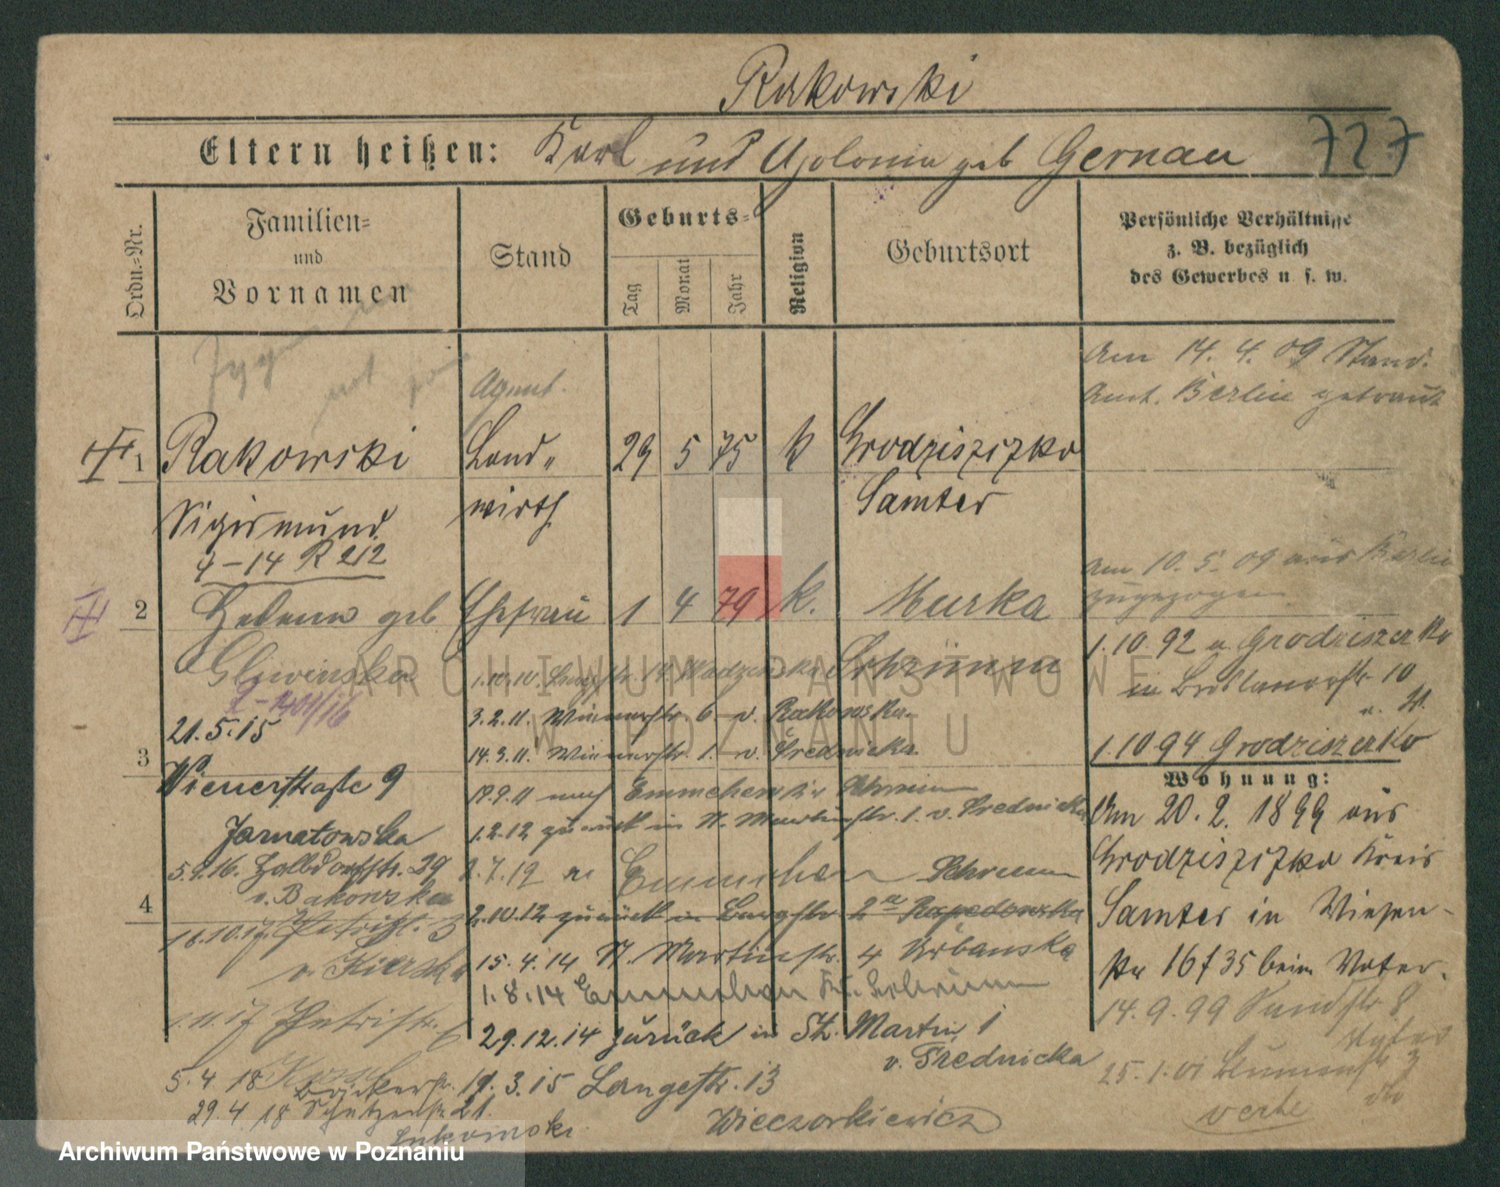 Rakowski
Eltern heißen: Karl und Apolonia geb Gernau 727
Ordn.-Nr.
Familien- und Vornamen
Stand
Geburts-
Tag
Monat
Jahr
Religion
Geburtsort
Persönliche Verhältnisse
z. B. bezüglich
des Gewerbes u s. w.
Am 14. 4. 09 Stand.
Amt. Berlin getraut
Agent.
1 Rakowski Land- 29 5 75 k Grodziszizko
Sigismund wirth Samter
7-14 R 212
am 10. 5. 09 aus Berlin
zugezogen
2 Helena geb Ehefrau 1 4 79 k. Murka
Gliwinska Schrimm
1.10.92 n Grodziszerko
in Breslauerstr 10
1.10 94 Grodziszerko
1.10.10.
3.2.11. Wienerstr. 6 v. Rakowska.
14.3.11. Wienerstr. 1. v. Srednicka.
19.9.11 nach Emmchen Schrimm
1.2.12 zurück in St. Martinstr. 1. v. Srednicka
2.7.12 n Emmchen Schrimm
2.10.12 zurück in Langstr 2a Rapedowska
15.4.14 St. Martinstr. 4 Urbanska
1.8.14 Emmchen Kr. Schrimm
29.12.14 zurück in St. Martin 1
v. Srednicka
11.3.15 Langestr. 13
Wieczorkiewicz
21.5.15
3
Wienerstraße 9
Jarnatowska
5.9.16. Halbdorfstr. 29
v. Bakowska
4
16.10.17 Petristr. 3
v. Kierska
1.11.17 Petristr. 6
5.4 18
Bäckerstr.
29.4.18 Schützenstr 21.
Lukowski.
Wohnung:
Am 20. 2. 1899 aus
Grodziszizko Kreis
Samter in Wiesen-
str 16 f 35 beim Vater.
14.9.99 Sandstr 8
Vater
25.1.01 Blumenstr 3
dto
verte
ARCHIWUM PAŃSTWOWE
W POZNANIU
Archiwum Państwowe w Poznaniu